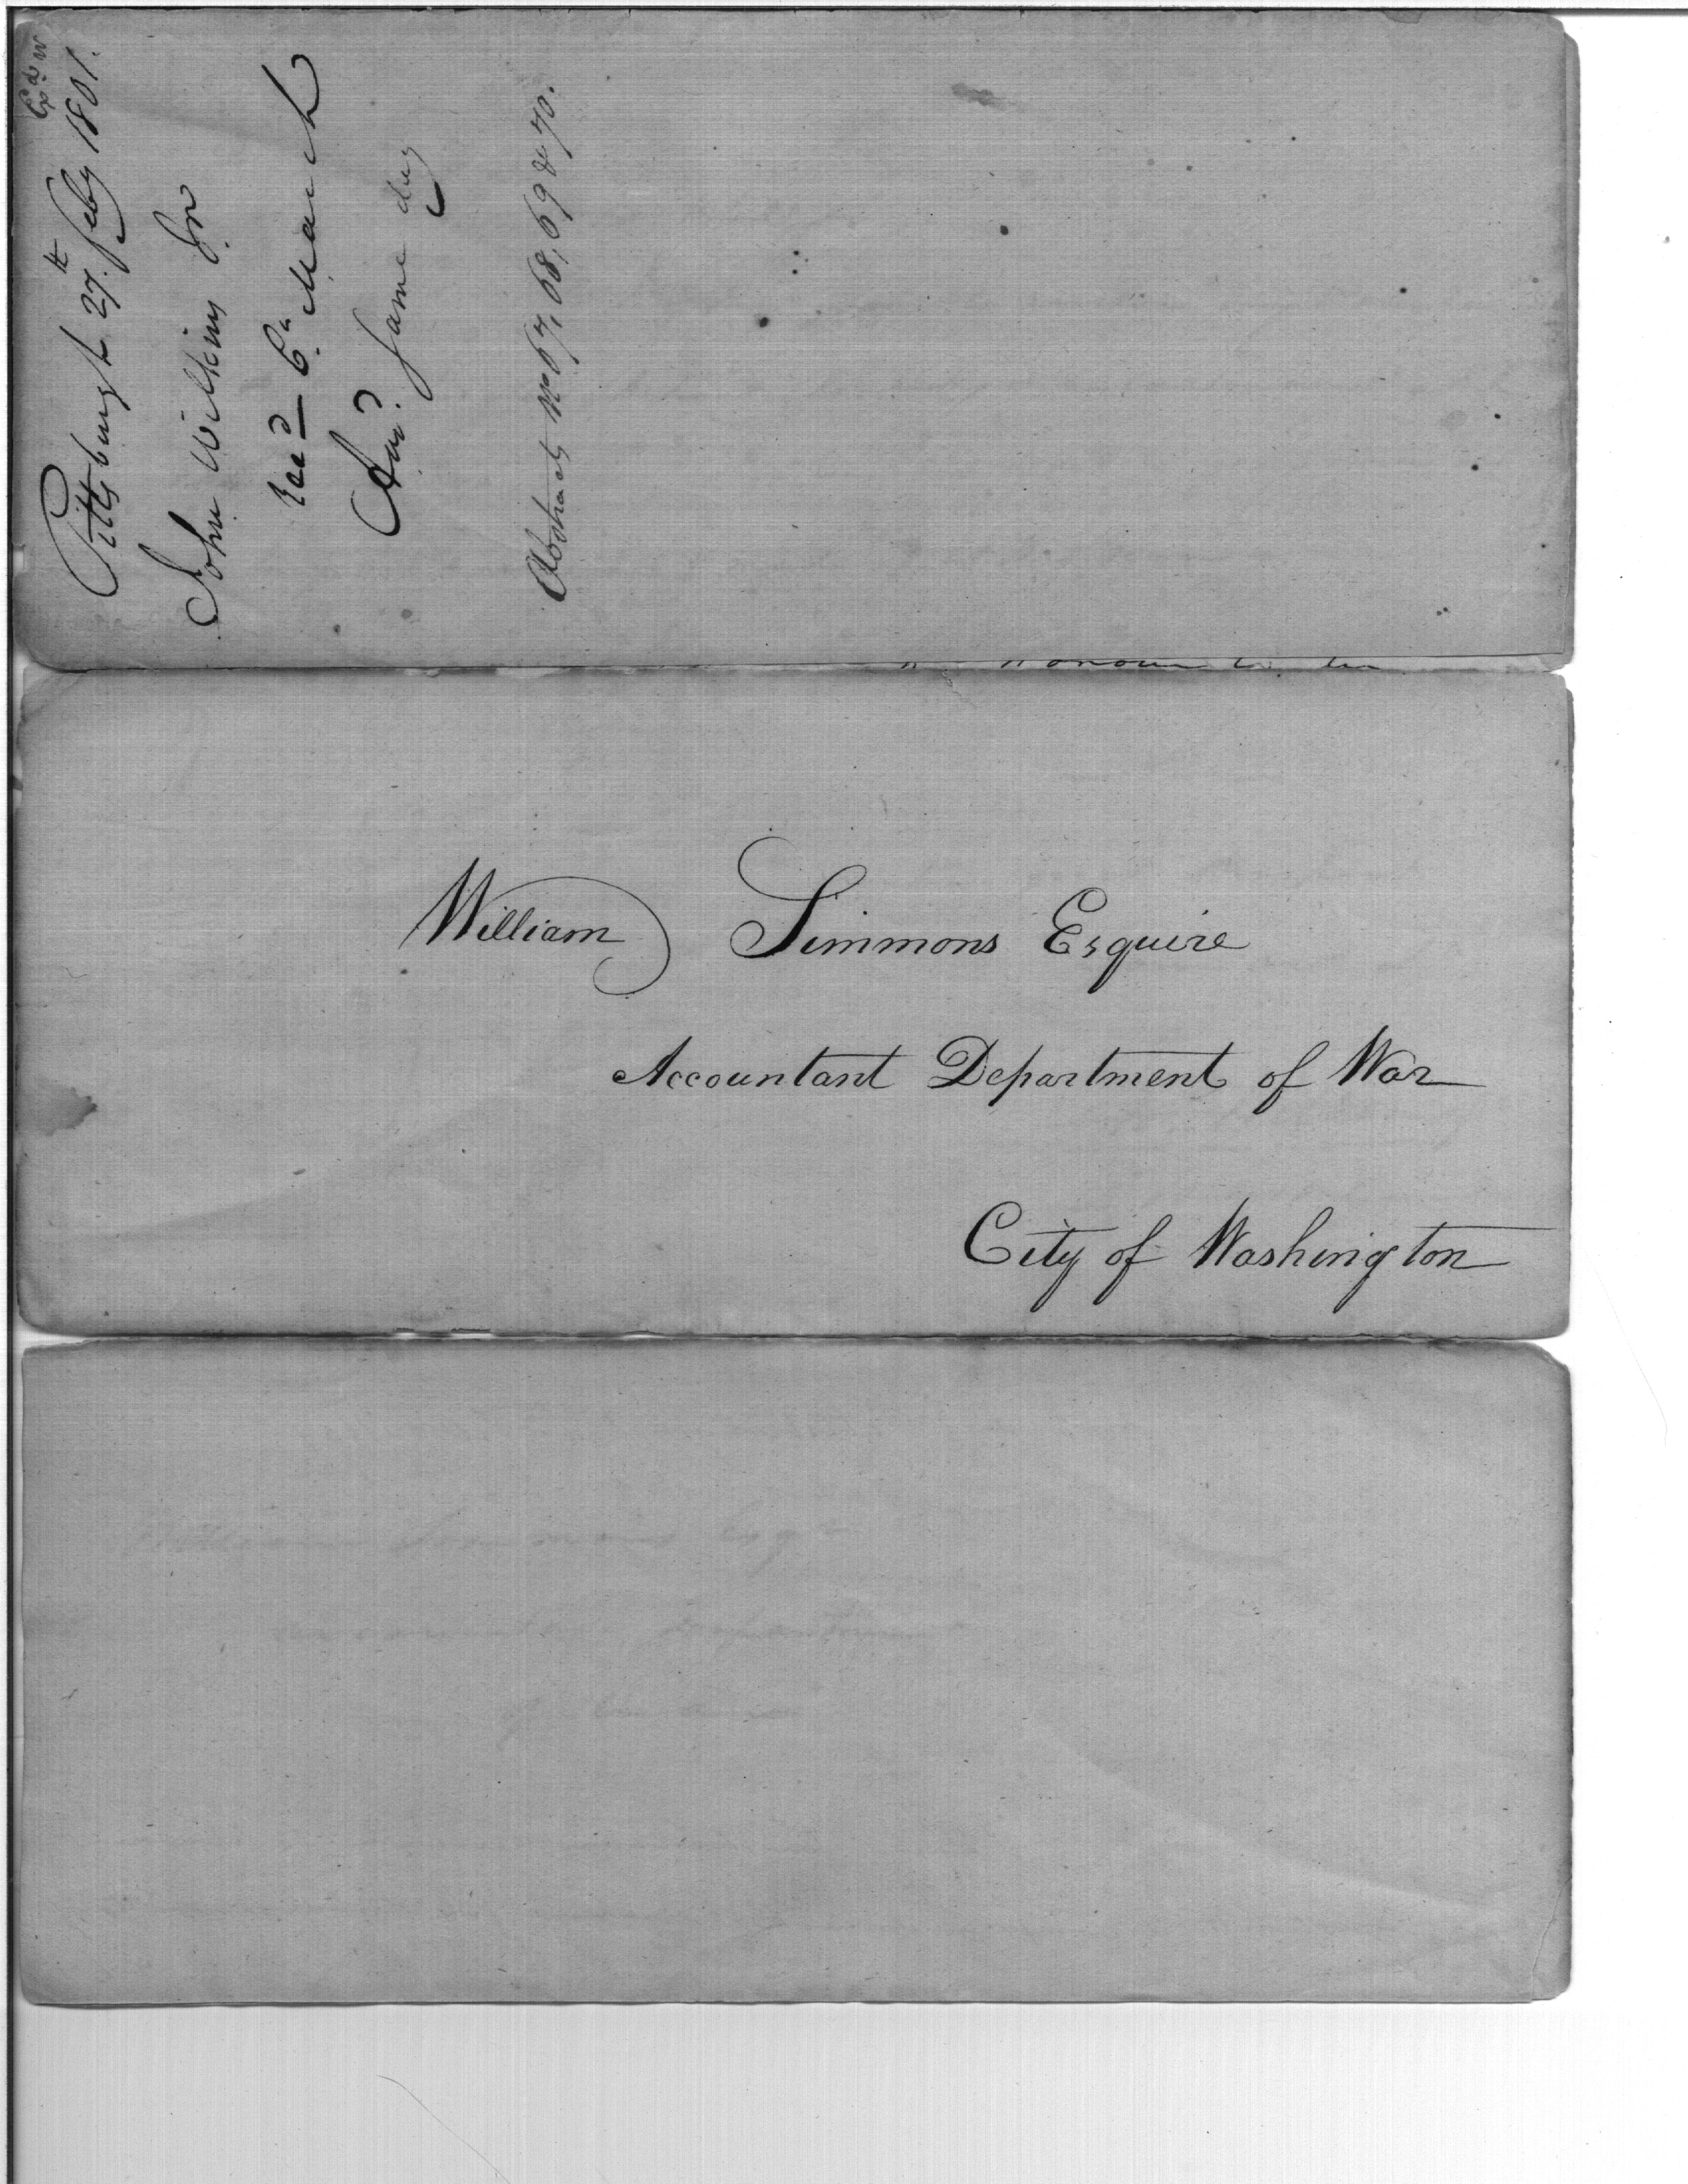 Exd W
Pittsburgh 27th feby 1801.
John Wilkins Jr
Recd 6th March
Ansd. same day
Abstracts No 67, 68, 69 & 70.
William Simmons Esquire
Accountant Department of War
City of Washington